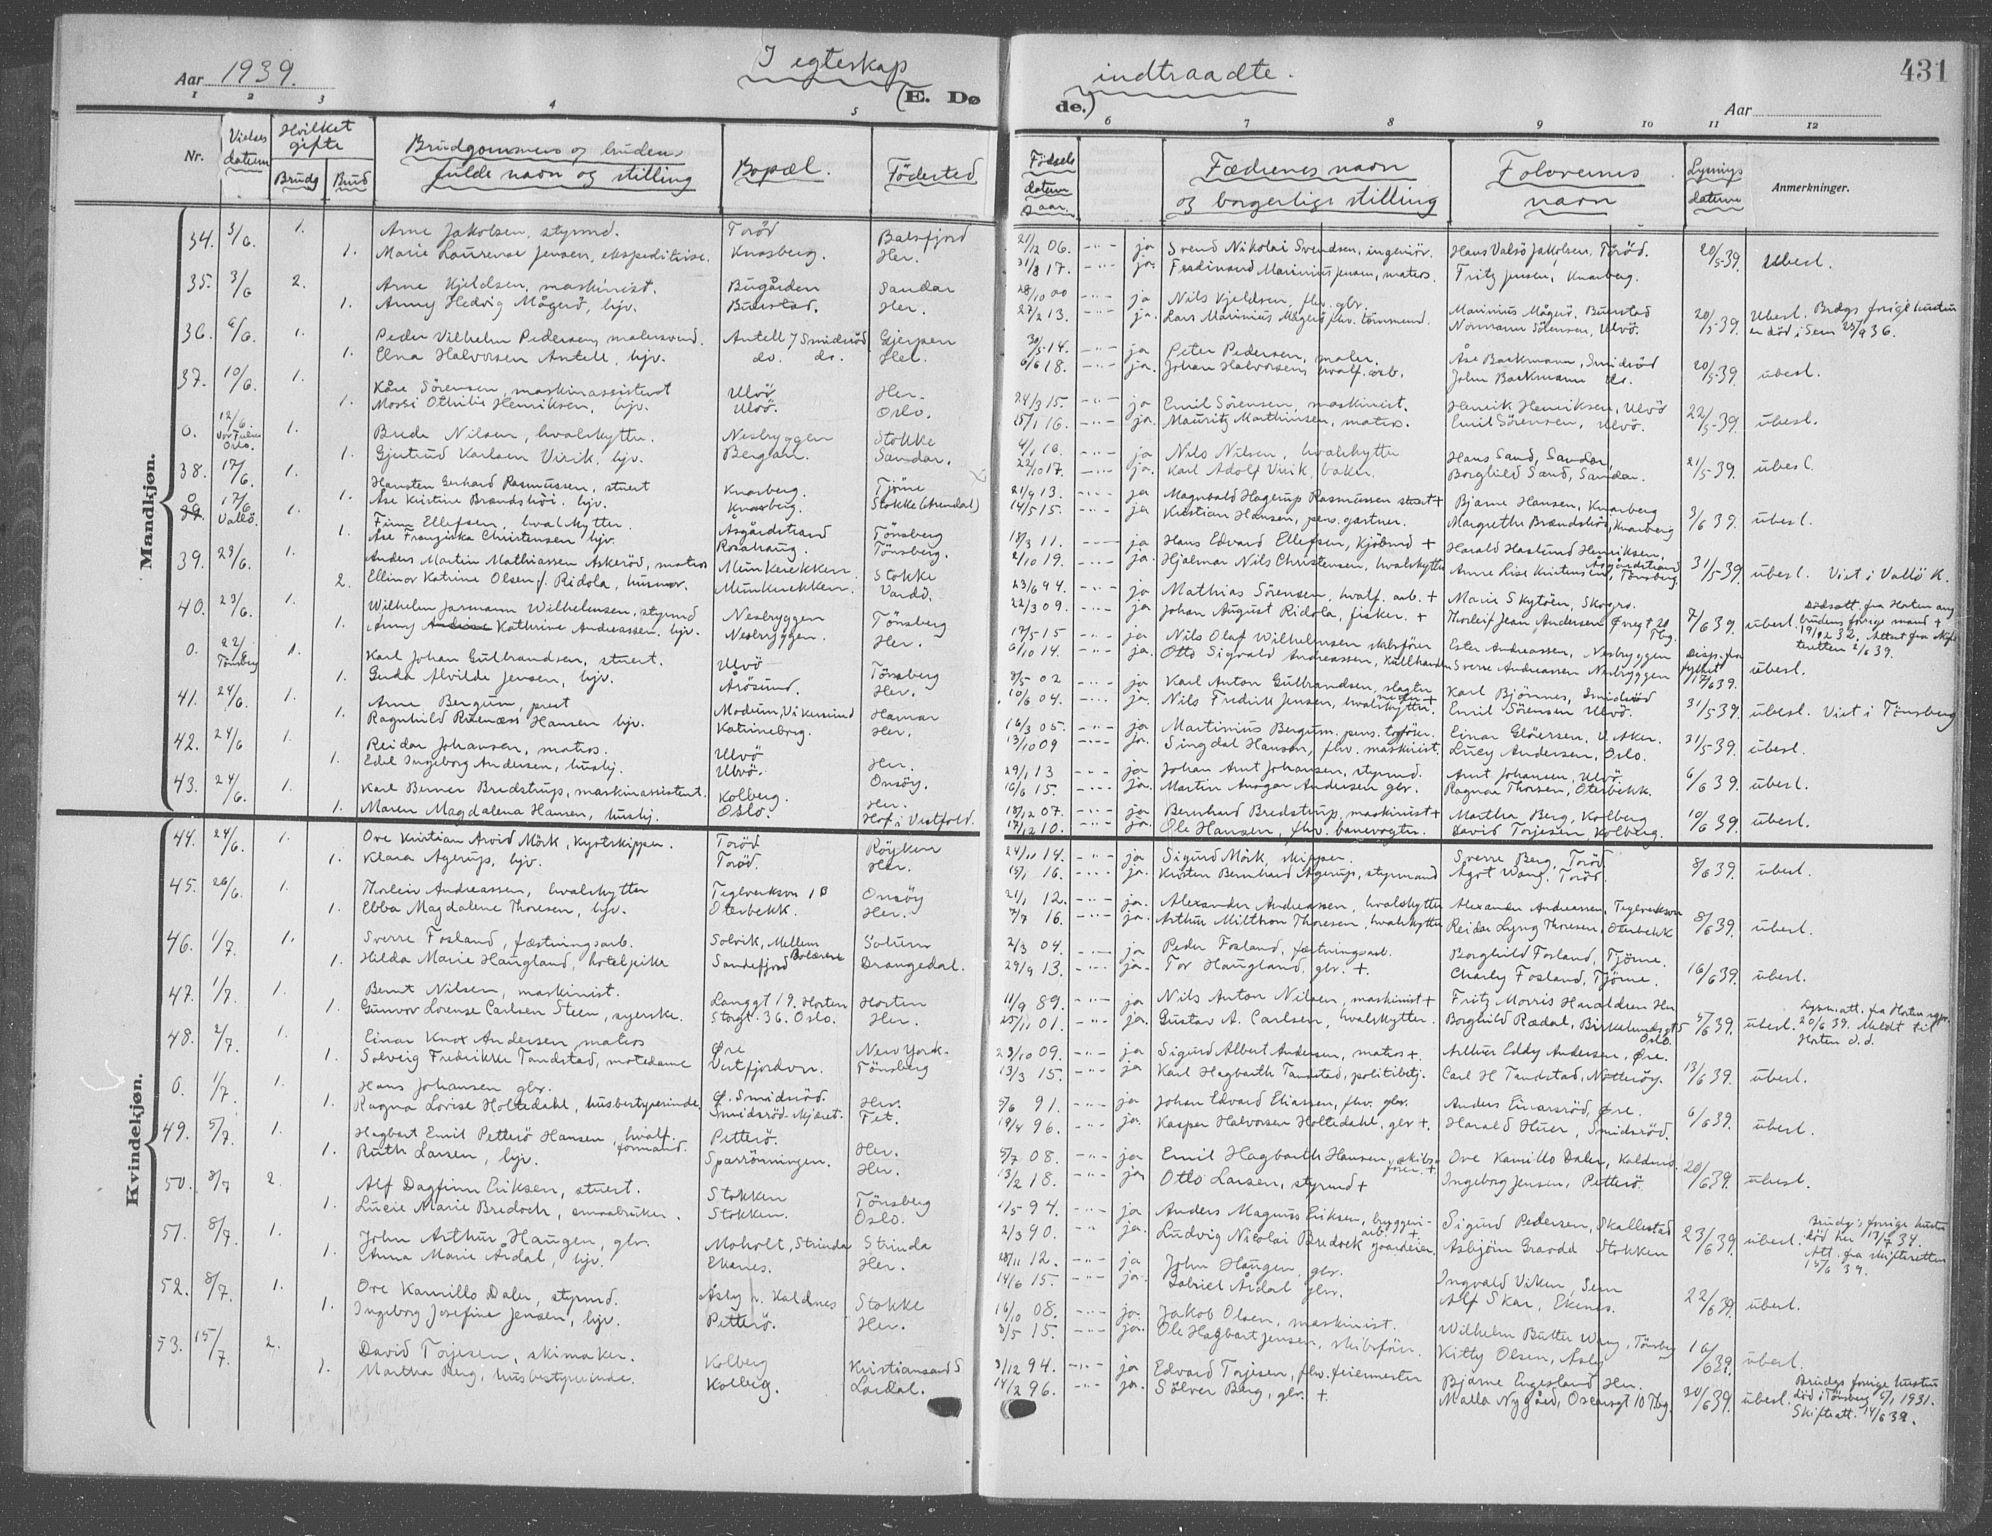 431
Aar 1939.
I egteskap indtraadte.
(E. Dø de.) Aar
1 2 3 4 5 6 7 8 9 10 11 12
Nr. Vielses datum Hvilket gifte Brudg Brud Brudgommens og brudens fulde navn og stilling Bopæl. Födested Födsels datum & aar. Fædrenes navn og borgerlige stilling Forlovernes navn Lysnings datum Anmerkninger.
Mandkjøn.
Kvindekjøn.
34. 3/6. 1. Arne Jakobsen, styrmd. Torød Balsfjord 21/12 06. ja Svend Nikolai Svendsen, ingeniör. Hans Valsö Jakobsen, Torød. 20/5-39. ubesl.
1. Marie Laurense Jensen, ekspeditrise. Knarberg. Her. 31/8 17. ja Ferdinand Marinius Jensen, matros. Fritz Jensen, Knarberg.
35. 3/6 2. Arne Kjeldsen, maskinist. Bugården Sandar 28/10 00 ja Nils Kjeldsen, fhv. gbr. Marinius Mågerö, Buerstad 20/5-39. ubesl. Brudgs forrige hustru
1. Anny Hedvig Mågerö, hjv. Buerstad. Her. 27/2 13. ja. Lars Marinius Mågerö, fhv. tömmermd. Normann Sörensen, Ulvö. er död i Sem 23/9 36.
36. 6/6. 1. Peder Vilhelm Pedersen, malersvend. Antell 7 Smidsröd Gjerpen 30/5-14. ja Peter Pedersen, maler. Åse Backmann, Smidsröd 20/5-39. ubesl.
1. Elna Halvorsen Antell, hjv. ds. ds. Her. 6/6 18. ja. Johan Halvorsen, hvalf. arb. John Backmann ds.
37. 10/6. 1. Kåre Sörensen, maskinassistent Ulvö Her. 24/3 15. ja Emil Sörensen, maskinist. Henrik Henriksen, Ulvö 22/5-39. ubesl.
1. Mossi Othilie Henriksen, hjv. Ulvö. Oslo. 15/1 16. ja. Mauritz Marthinsen, matros. Emil Sörensen, Ulvö.
0. 12/6. Vor Frelser Oslo. 1. Brede Nilsen, hvalskytter. Nesbryggen Stokke 4/1 16. ja Nils Nilsen, hvalskytter Hans Sand, Sandar. 21/5-39. ubesl.
1. Gjertrud Karlsen Virik, hjv. Bergan. Sandar. 22/10 17. ja. Karl Adolf Virik, baker. Borghild Sand, Sandar.
38. 17/6. 1. Karsten Gerhard Rasmussen, stuert Knarberg. Tjöme 21/9 13. ja Magnvald Hagerup Rasmussen stuert + Bjarne Hansen, Knarberg 3/6 39. ubesl.
1. Åse Kirstine Brandshöi. hjv. Knarberg. Stokke (Arendal) 14/5 15. ja Kristian Hansen, pens. gartner. Margrethe Brandshöi, Knarberg
0 17/6 Vallö. 1. Finn Ellefsen, hvalskytter. Åsgårdstrand Tönsberg 18/3 11. ja Hans Edvard Ellefsen, Kjöbmd + Harald Haslund Henriksen, Åsgårdstrand 31/5-39. ubesl. Viet i Vallö K.
1. Åse Franziska Christensen hjv. Rosahaug. Tönsberg. 2/10 19. ja. Hjalmar Nils Christensen, hvalskytter Anne Lise Kristensen, Tönsberg
39. 23/6. 1. Anders Martin Mathiassen Askeröd, matros Munkerekken. Stokke 23/6 94. ja Mathias Sörensen, hvalf. arb. + Marie Skytöen, Skogro. 7/6 39. ubesl. Dödsatt. fra Horten ang
2. Ellinor Katrine Olsen f. Ridola, husmor. Munkerekken. Vardö. 22/3 09. ja Johan August Ridola, fisker. + Thorleif Jean Andersen Øvregt 20 Tbg. brudens forrige mand + 19/12 32, Attest fra skifteretten 2/6 39.
40. 23/6. 1. Wilhelm Jarmann Wilhelmsen, styrmd Nesbryggen Tönsberg 17/5 15 ja Nils Olaf Wilhelmsen skibsförer Ester Andreassen, Nesbryggen Disp. fra fylket 17/6 39. ubesl.
1. Anny Kathrine Andreassen, hjv. Nesbryggen. Her. 6/10 14. ja. Otto Sigvald Andreassen, Kullhandler Sverre Andreassen Nesbryggen
0. 22/6 Tönsberg 1. Karl Johan Gulbrandsen, stuert. Ulvö Tönsberg 3/5- 02 ja Karl Anton Gulbrandsen, slagter Karl Bjönnes, Smidsröd 31/5-39. ubesl. Viet i Tönsberg
1. Guda Alvilde Jensen, hjv. Årösund. Her. 10/6 04. ja. Nils Fredrik Jensen, hvalskytter. Emil Sörensen Ulvö.
41. 24/6. 1. Arne Bergum, prest Modum, Vikersund Hamar 16/3 05. ja Martinius Bergum, pens. togförer. Einar Glöersen, V. Aker. 31/5-39. ubesl.
1. Ragnhild Hansen hjv. Katrineborg. Her. 13/10 09 ja. Singdal Hansen, fhv. maskinist. Lucy Andersen, Oslo.
42. 24/6 1. Reidar Johansen, matros. Ulvö Her. 29/1 13 ja Johan Arnt Johansen, styrmd. Arnt Johansen, Ulvö. 6/6 39. ubesl.
1. Edel Ingeborg Andersen, hushj. Ulvö. Onsöy. 16/6 15. ja. Martin Ansgar Andersen gbr. Ragnar Thoresen, Oterbekk.
43. 24/6. 1. Karl Berner Bredstrup, maskinassistent. Kolberg. Her. 18/12 07. ja Bernhard Bredstrup, maskinist + Martha Berg, Kolberg 10/6 39. ubesl.
1. Maren Magdalena Hansen, hushj. Oslo. Hof i Vestfold. 17/12 10. ja. Ole Hansen, fhv. banevogter. David Torjesen Kolberg.
44. 24/6. 1. Ove Kristian Arvid Mörk, kystskipper. Torød Röyken 24/11 14. ja Sigurd Mörk, skipper. Sverre Berg, Torød. 8/6 39. ubesl.
1. Klara Agerup, hjv. Torød. Her. 15/1 16. ja. Kirsten Bernhard Agerup, styrmand Agot Wang, Torød.
45. 26/6. 1. Thorleiv Andreassen, hvalskytter Teglverksvn 1 B Onsöy 21/1 12. ja. Alexander Andreassen, hvalskytter Alexander Andreassen, Teglverksvn 8/6 39. ubesl.
1. Ebba Magdalene Thoresen, hjv. Oterbekk. Her. 7/7 16. ja. Arthur Milthon Thoresen, hvalskytter Reidar Lyng Thoresen, Oterbekk
46. 1/7. 1. Sverre Fosland, fæstningsarb. Solvik, Mellem Bolærene Solum 2/3 04. ja Peder Fosland, fæstningsarb. Borghild Fosland, Tjöme. 16/6 39. ubesl.
1. Hilda Marie Haugland, hotelpike Sandefjord Drangedal. 29/9 13. ja. Tor Haugland, gbr. +. Charly Fosland, Tjöme.
47. 1/7. 1. Bernt Nilsen, maskinist. Langgt 19. Horten Horten 11/9 89. ja Nils Anton Nilsen, maskinist + Fritz Morris Haraldsen Her 5/6 39. ubesl. Lysn. att. fra Horten
1. Gunvor Lorense Carlsen Steen, syerske. Storgt. 36. Oslo. Her. 25/11 01. ja. Gustav A. Carlsen, hvalskytter. Borghild Rædal, Birkelundsgt 5 Oslo. 20/6 39. Meldt til Horten d. d.
48. 2/7. 1. Einar Knox Andersen, matros Øre New York. 23/10 09. ja Sigurd Albert Andersen, matros +. Arthur Eddy Andersen, Øre. 13/6 39. ubesl.
1. Solveig Fredrikke Tandstad, motedame Vestfjordvn. Tönsberg 13/3 15. ja Karl Hagbarth Tandstad, politibetj. Carl H Tandstad, Nötteröy.
0. 1/7. 1. Hans Johansen gbr. Ø. Smidsröd. Her. 5/6 91. ja Johan Edvard Eliassen, fhv. gbr. Anders Einarsröd, Øre. 6/6 39. ubesl.
1. Ragna Lovise Holtedahl, husbestyrerinde Smidsröd Kjæret. Fet. 19/4 96. ja. Kasper Halvorsen Holtedahl, gbr +. Harald Huer, Smidsröd.
49. 5/7. 1. Hagbart Emil Petterö Hansen, hvalf. formand. Petterö. Her. 5/7 08. ja Emil Hagbarth Hansen, skibsförer. + Ove Kamillo Daler, Kaldnes. 20/6 39. ubesl.
1. Ruth Larsen, hjv. Sparrönningen. Her. 13/2 18. ja Otto Larsen, styrmd + Ingeborg Jensen, Petterö.
50. 8/7 2. Alf Dagfinn Eriksen, stuert. Stokken Tönsberg 1/5- 94. ja Anders Magnus Eriksen, bryggeriarb. + Sigurd Pedersen, Skallestad 23/6 39. ubesl. Brudg's forrige hustru
1. Lucie Marie Bredoch, smaabruker. Stokken. Oslo. 2/3 90. ja. Ludvig Nicolai Bredoch gaardeier. Asbjörn Gravdal Stokken död her 17/7 34. Att. fra skifteretten 15/6 39.
51. 8/7. 1. John Arthur Haugen, gbr. Moholt, Strinda Strinda 28/11 12. ja John Haugen, gbr. Ingvald Viken, Sem 22/6 39. ubesl.
1. Anna Marie Årdal, hjv. Ekenes. Her. 14/6 15. ja. Gabriel Årdal gbr. Alf Skar, Ekenes.
52. 8/7. 1. Ove Kamillo Daler, styrmd. Åsly v. Kaldnes Stokke 16/10 08. ja. Jakob Olsen, maskinist. Wilhelm Butter Wang, Tönsberg 16/6 39. ubesl.
1. Ingeborg Josefine Jensen, hjv. Petterö. Her. 3/5 15. ja. Ole Hagbart Jensen, skibsförer. Kitty Olsen, Åsly
53. 15/7. 2. David Torjesen, skimaker. Kolberg Kristiansand S 3/12 94. ja Edvard Torjesen, fhv. feiermester Bjarne Engesland Her. 20/6 39. ubesl. Brudgs forrige hustru
1. Martha Berg, husbestyrerinde. Kolberg. Lardal. 14/2 96. ja. Sölver Berg, gbr. + Malla Nygård, Oscarsgt 10 Tbg. död i Tönsberg 5/1 1931. Skifteatt. 14/6 39.